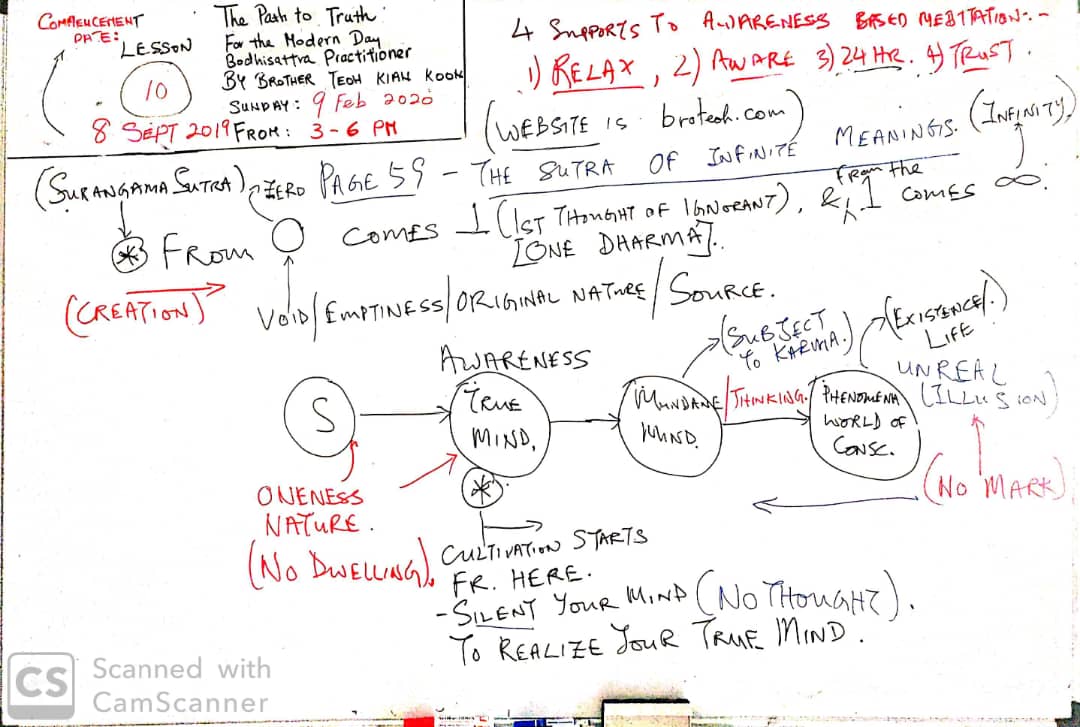 COMMENCEMENT
DATE:
LESSON
10
8 SEPT 2019
The Path to Truth
For the Modern Day
Bodhisattva Practitioner
BY BROTHER TEOH KIAN KOON
SUNDAY: 9 Feb 2020
FROM: 3-6 PM
4 SUPPORTS TO AWARENESS BASED MEDITATION:-
1) RELAX, 2) AWARE 3) 24 HR. 4) TRUST.
(WEBSITE IS broteoh.com)
(SURANGAMA SUTRA) ZERO PAGE 59 - THE SUTRA OF INFINITE MEANINGS. (INFINITY)
* FROM O COMES 1 (1ST THOUGHT OF IGNORANT), & from the 1 COMES ∞.
[ONE DHARMA].
(CREATION)
VOID/EMPTINESS/ORIGINAL NATURE/SOURCE.
AWARENESS
(SUBJECT TO KARMA.)
(EXISTENCE/.)
LIFE
UNREAL
(ILLUSION)
S
TRUE
MIND.
MUNDANE/THINKING.
MIND.
PHENOMENA
WORLD OF
CONSC.
ONENESS
NATURE.
(NO DWELLING).
*
(NO MARK)
CULTIVATION STARTS
FR. HERE.
-SILENT YOUR MIND (NO THOUGHT).
TO REALIZE YOUR TRUE MIND.
CS
Scanned with
CamScanner